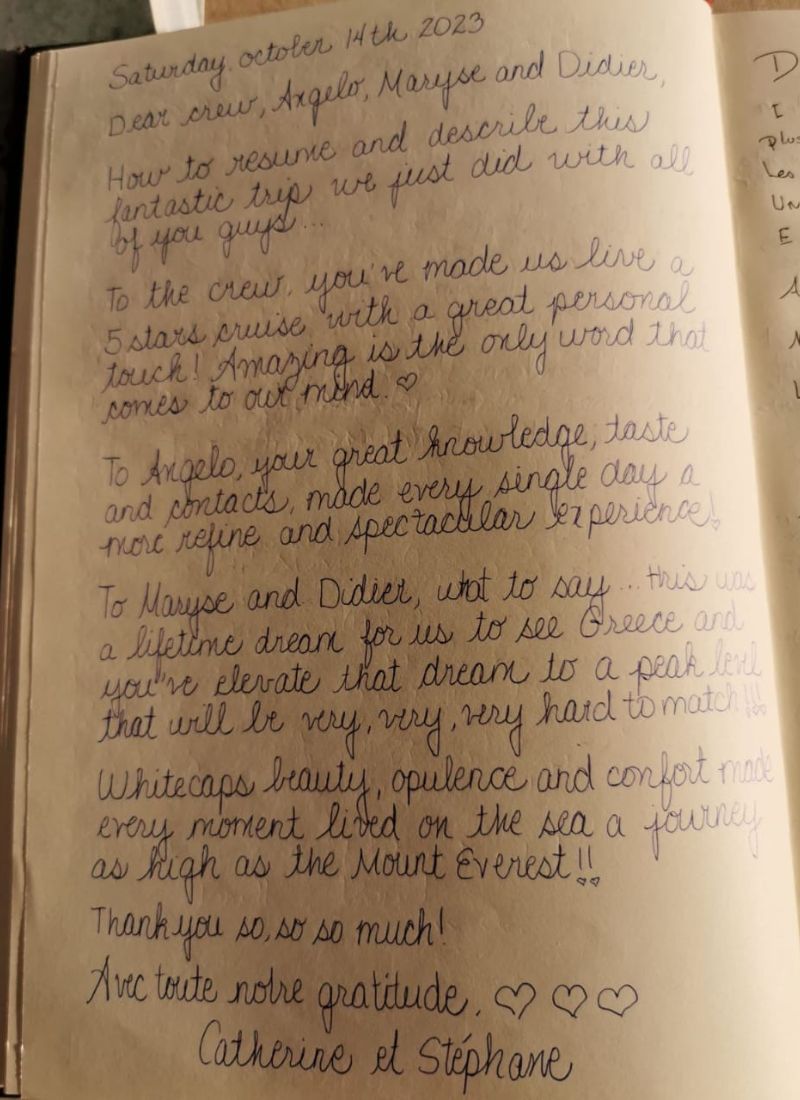 Saturday, october 14th 2023
Dear crew, Angelo, Maryse and Didier,
How to resume and describe this
fantastic trip we just did with all
of you guys...
To the crew, you've made us live a
5 stars cruise with a great personal
touch! Amazing is the only word that
comes to our mind. ♡
To Angelo, your great knowledge, taste
and contacts, made every single day a
more refine and spectacular experience!
To Maryse and Didier, what to say... this was
a lifetime dream for us to see Greece and
you've elevate that dream to a peak level
that will be very, very, very hard to match!!!
Whitecaps beauty, opulence and confort made
every moment lived on the sea a journey
as high as the Mount Everest!!
Thank you so, so so much!
Avec toute notre gratitude. ♡ ♡ ♡
Catherine et Stéphane
D
I
plus
Les
Un
E
A